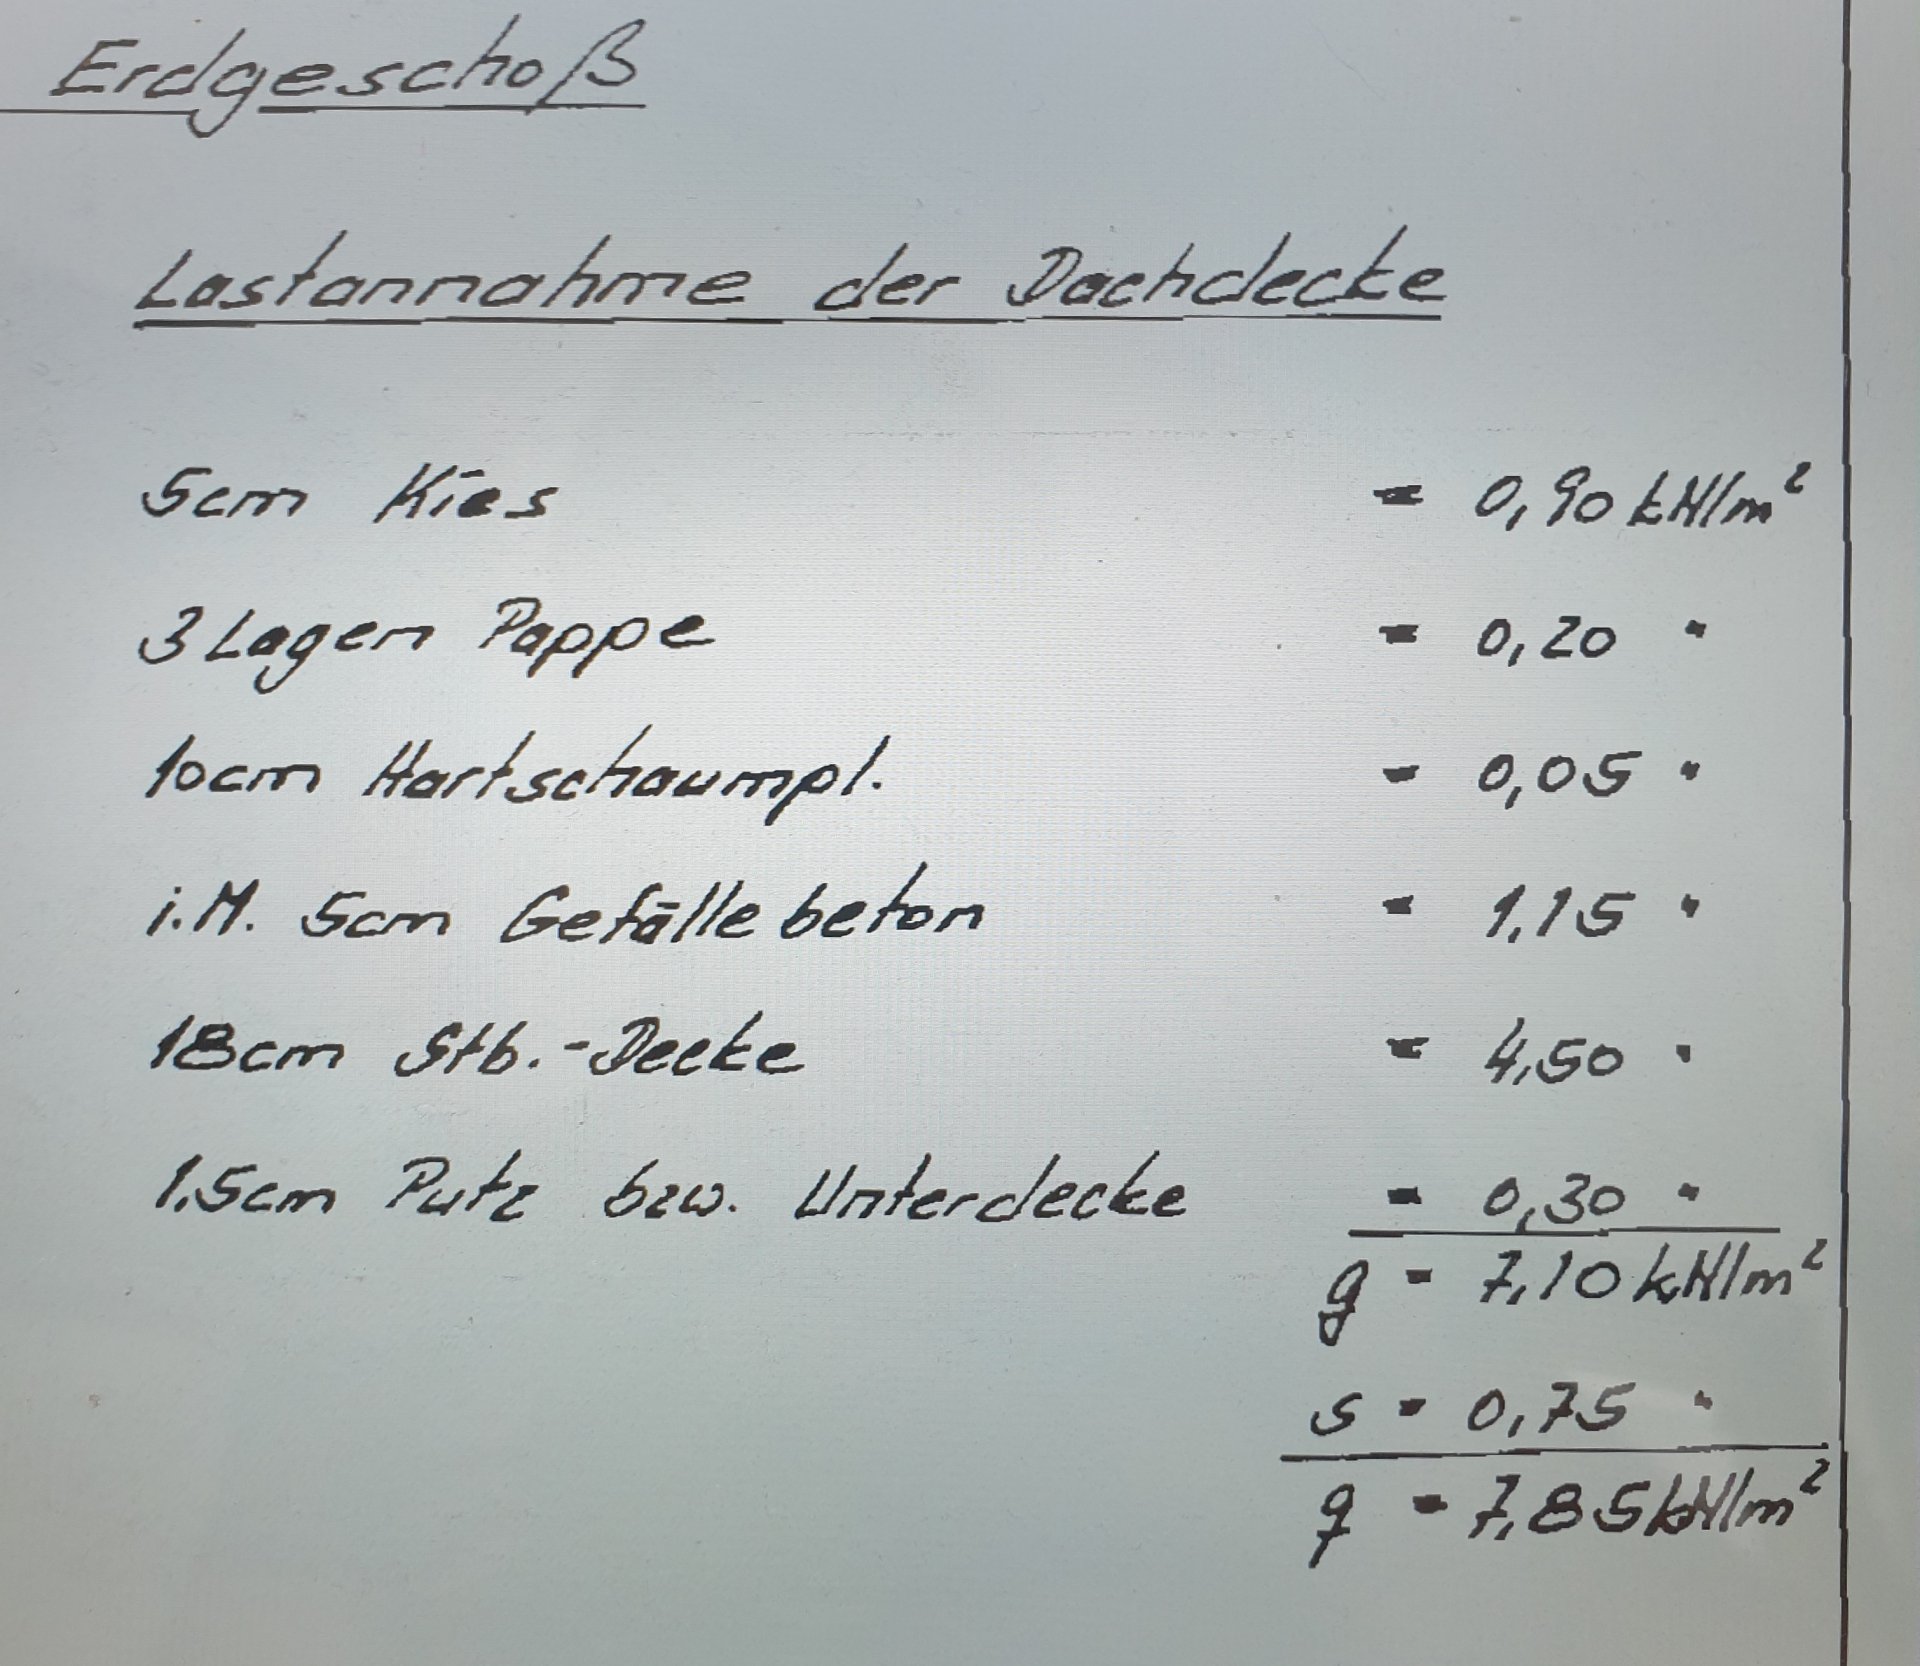 Erdgeschoß
Lastannahme der Dachdecke
5cm Kies = 0,90 kN/m²
3 Lagen Pappe = 0,20 "
10cm Hartschaumpl. = 0,05 "
i.M. 5cm Gefällebeton = 1,15 "
18cm Stb.-Decke = 4,50 "
1,5cm Putz bzw. Unterdecke = 0,30 "
g = 7,10 kN/m²
s = 0,75 "
q = 7,85 kN/m²